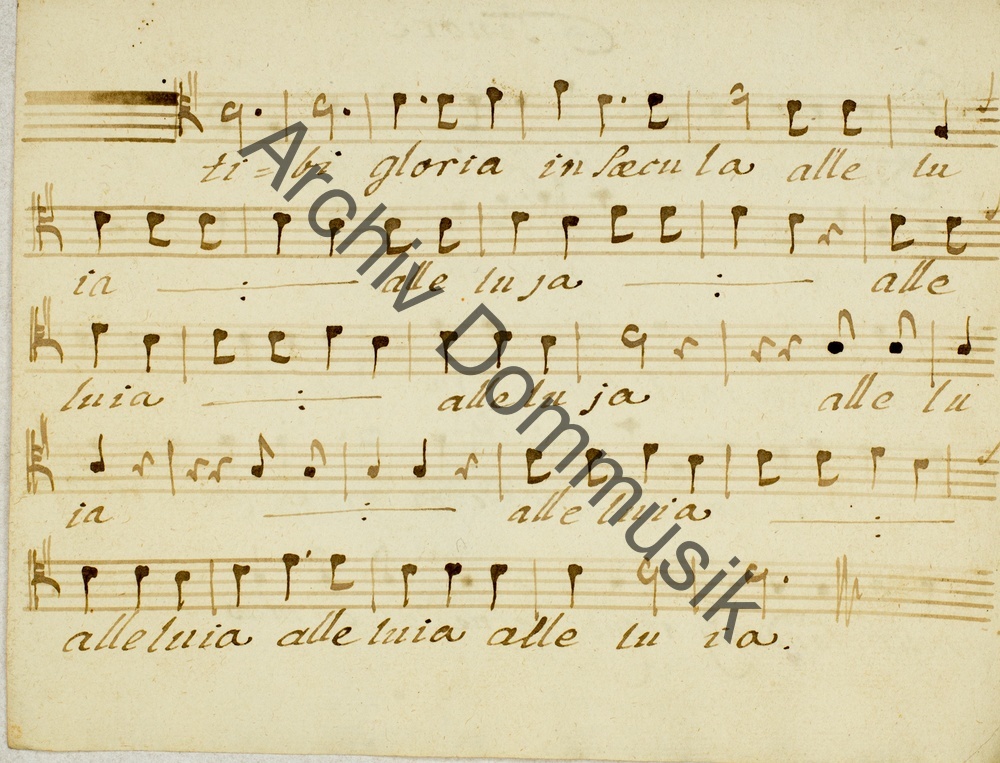 ti=bi gloria in sæcula alle lu
ia alle luja alle
luia alleluja alle lu
ia alle luia
alleluia alleluia alle lu ia.
Archiv Dommusik